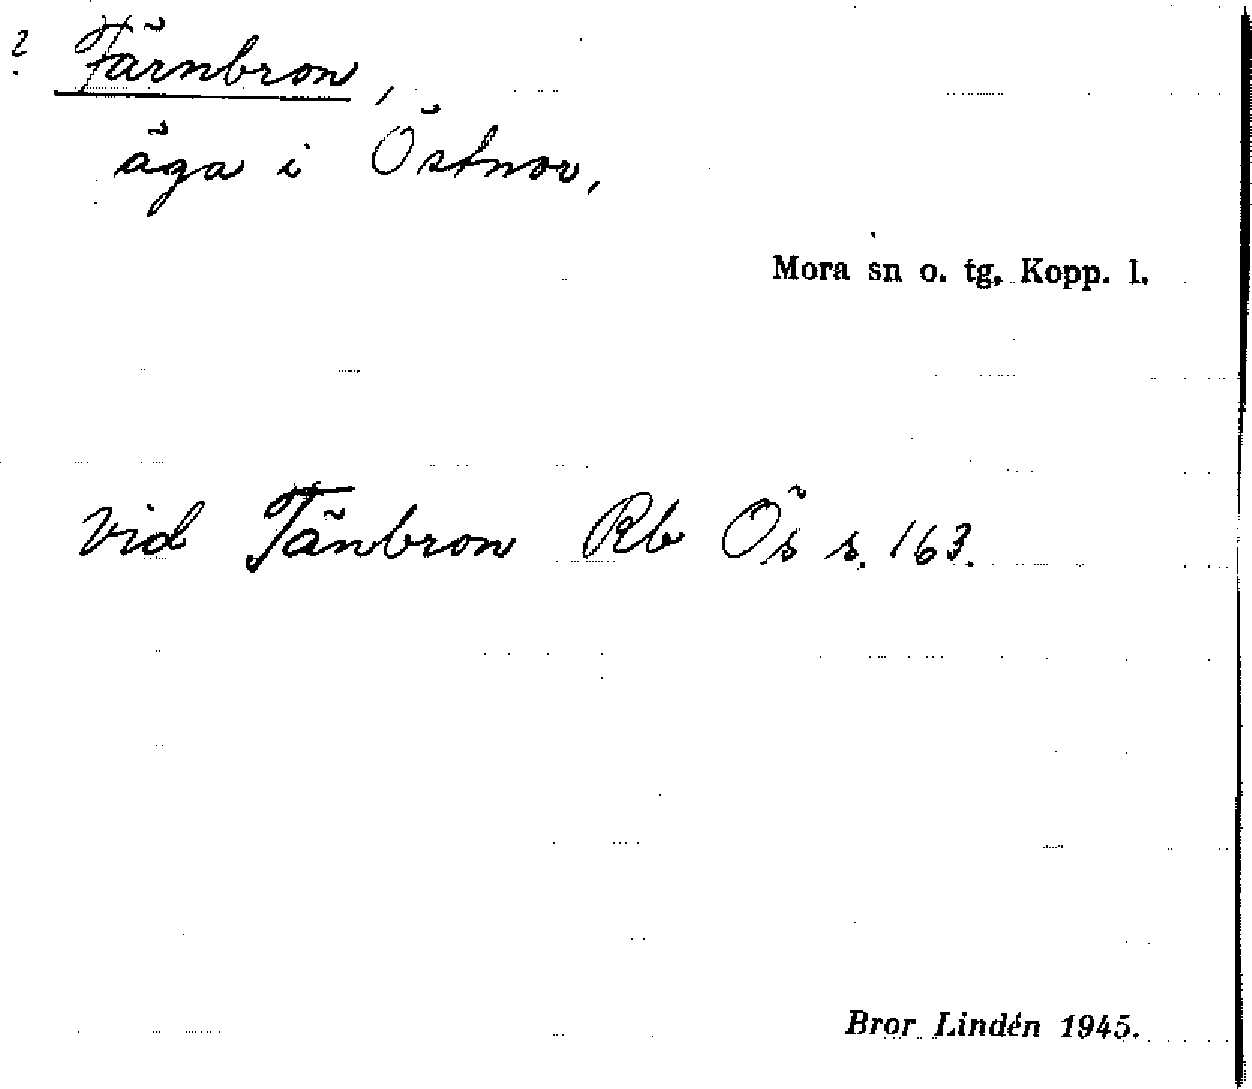 ? Färnbron,
äga i Östnor,
Mora sn o. tg, Kopp. l.
vid Tänbron Rb Ös s. 163.
Bror Lindén 1945.